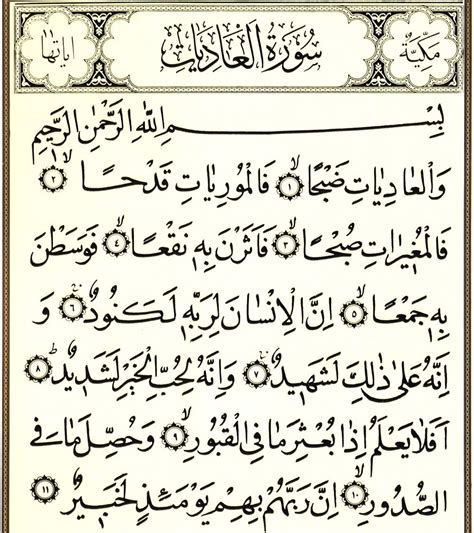 مكية سورة العاديات اياتها ١١
بِسْمِ اللّٰهِ الرَّحْمٰنِ الرَّحِيمِ
وَالْعَادِيَاتِ ضَبْحًاۙ ﴿١﴾ فَالْمُورِيَاتِ قَدْحًاۙ ﴿٢﴾
فَالْمُغِيرَاتِ صُبْحًاۙ ﴿٣﴾ فَاَثَرْنَ بِهِ نَقْعًاۙ ﴿٤﴾ فَوَسَطْنَ
بِهِ جَمْعًاۙ ﴿٥﴾ اِنَّ الْاِنْسَانَ لِرَبِّهِ لَكَنُودٌۚ ﴿٦﴾ وَ
اِنَّهُ عَلٰى ذٰلِكَ لَشَهِيدٌۚ ﴿٧﴾ وَاِنَّهُ لِحُبِّ الْخَيْرِ لَشَدِيدٌۜ ﴿٨﴾
اَفَلَا يَعْلَمُ اِذَا بُعْثِرَ مَا فِي الْقُبُورِۙ ﴿٩﴾ وَحُصِّلَ مَا فِي
الصُّدُورِۙ ﴿١٠﴾ اِنَّ رَبَّهُمْ بِهِمْ يَوْمَئِذٍ لَخَبِيرٌ ﴿١١﴾